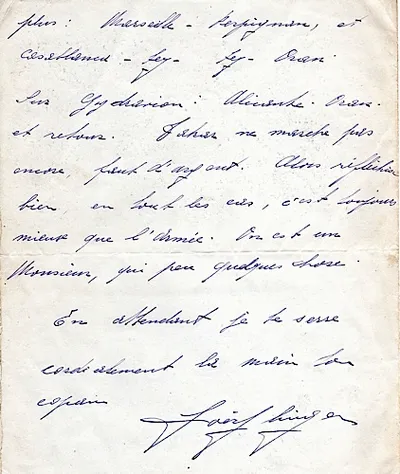 plus : Marseille - Perpignan, et
Casablanca - Fez - Fez - Oran
Sur Hydravion : Alicante - Oran
et retour. ne marche pas
encore, faut d'argent. Alors réfléchis
bien en tout les cas, c'est toujours
mieux que l'armée. On est un
Monsieur, qui peu quelques chose.
En attendant je te serre
cordialement la main ton
copain